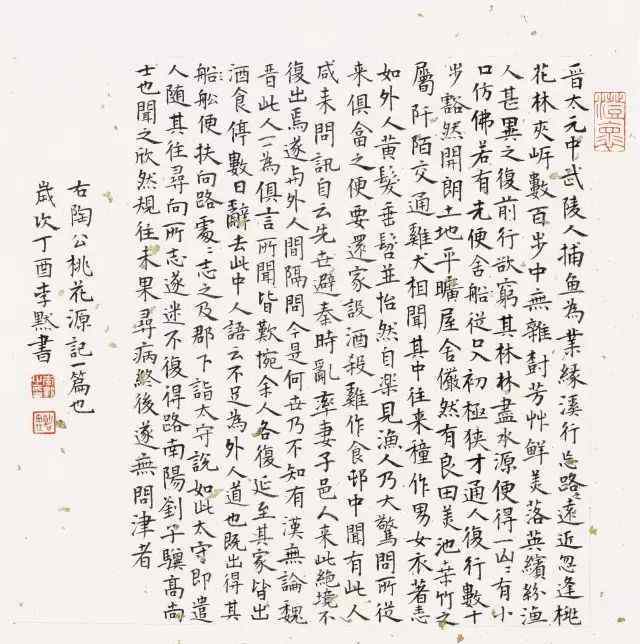 晉太元中武陵人捕鱼為業緣溪行忘路之遠近忽逢桃
花林夾岍數百步中無雜樹芳艸鮮美落英繽紛漁
人甚異之復前行欲窮其林林盡水源便得一山〻有小
口仿佛若有光便舍船從口入初極狹才通人復行數十
步豁然開朗土地平曠屋舍儼然有良田美池桒竹之
屬阡陌交通雞犬相聞其中往來種作男女衣著悉
如外人黄髮垂髫並怡然自樂見漁人乃大驚問所從
來俱畣之便要還家設酒殺雞作食邨中聞有此人
咸来問訊自云先世避秦時亂率妻子邑人来此絶境不
復出焉遂与外人間隔問今是何世乃不知有漢無論魏
晉此人一一為俱言所聞皆歎惋余人各復延至其家皆出
酒食停數日辭去此中人語云不足為外人道也既出得其
船舩便扶向路處〻志之及郡下詣太守說如此太守即遣
人隨其往尋向所志遂迷不復得路南陽劉子驥高尚
士也聞之欣然規往未果尋病終後遂無問津者
右陶公桃花源記一篇也
歲次丁酉李默書
澄懷